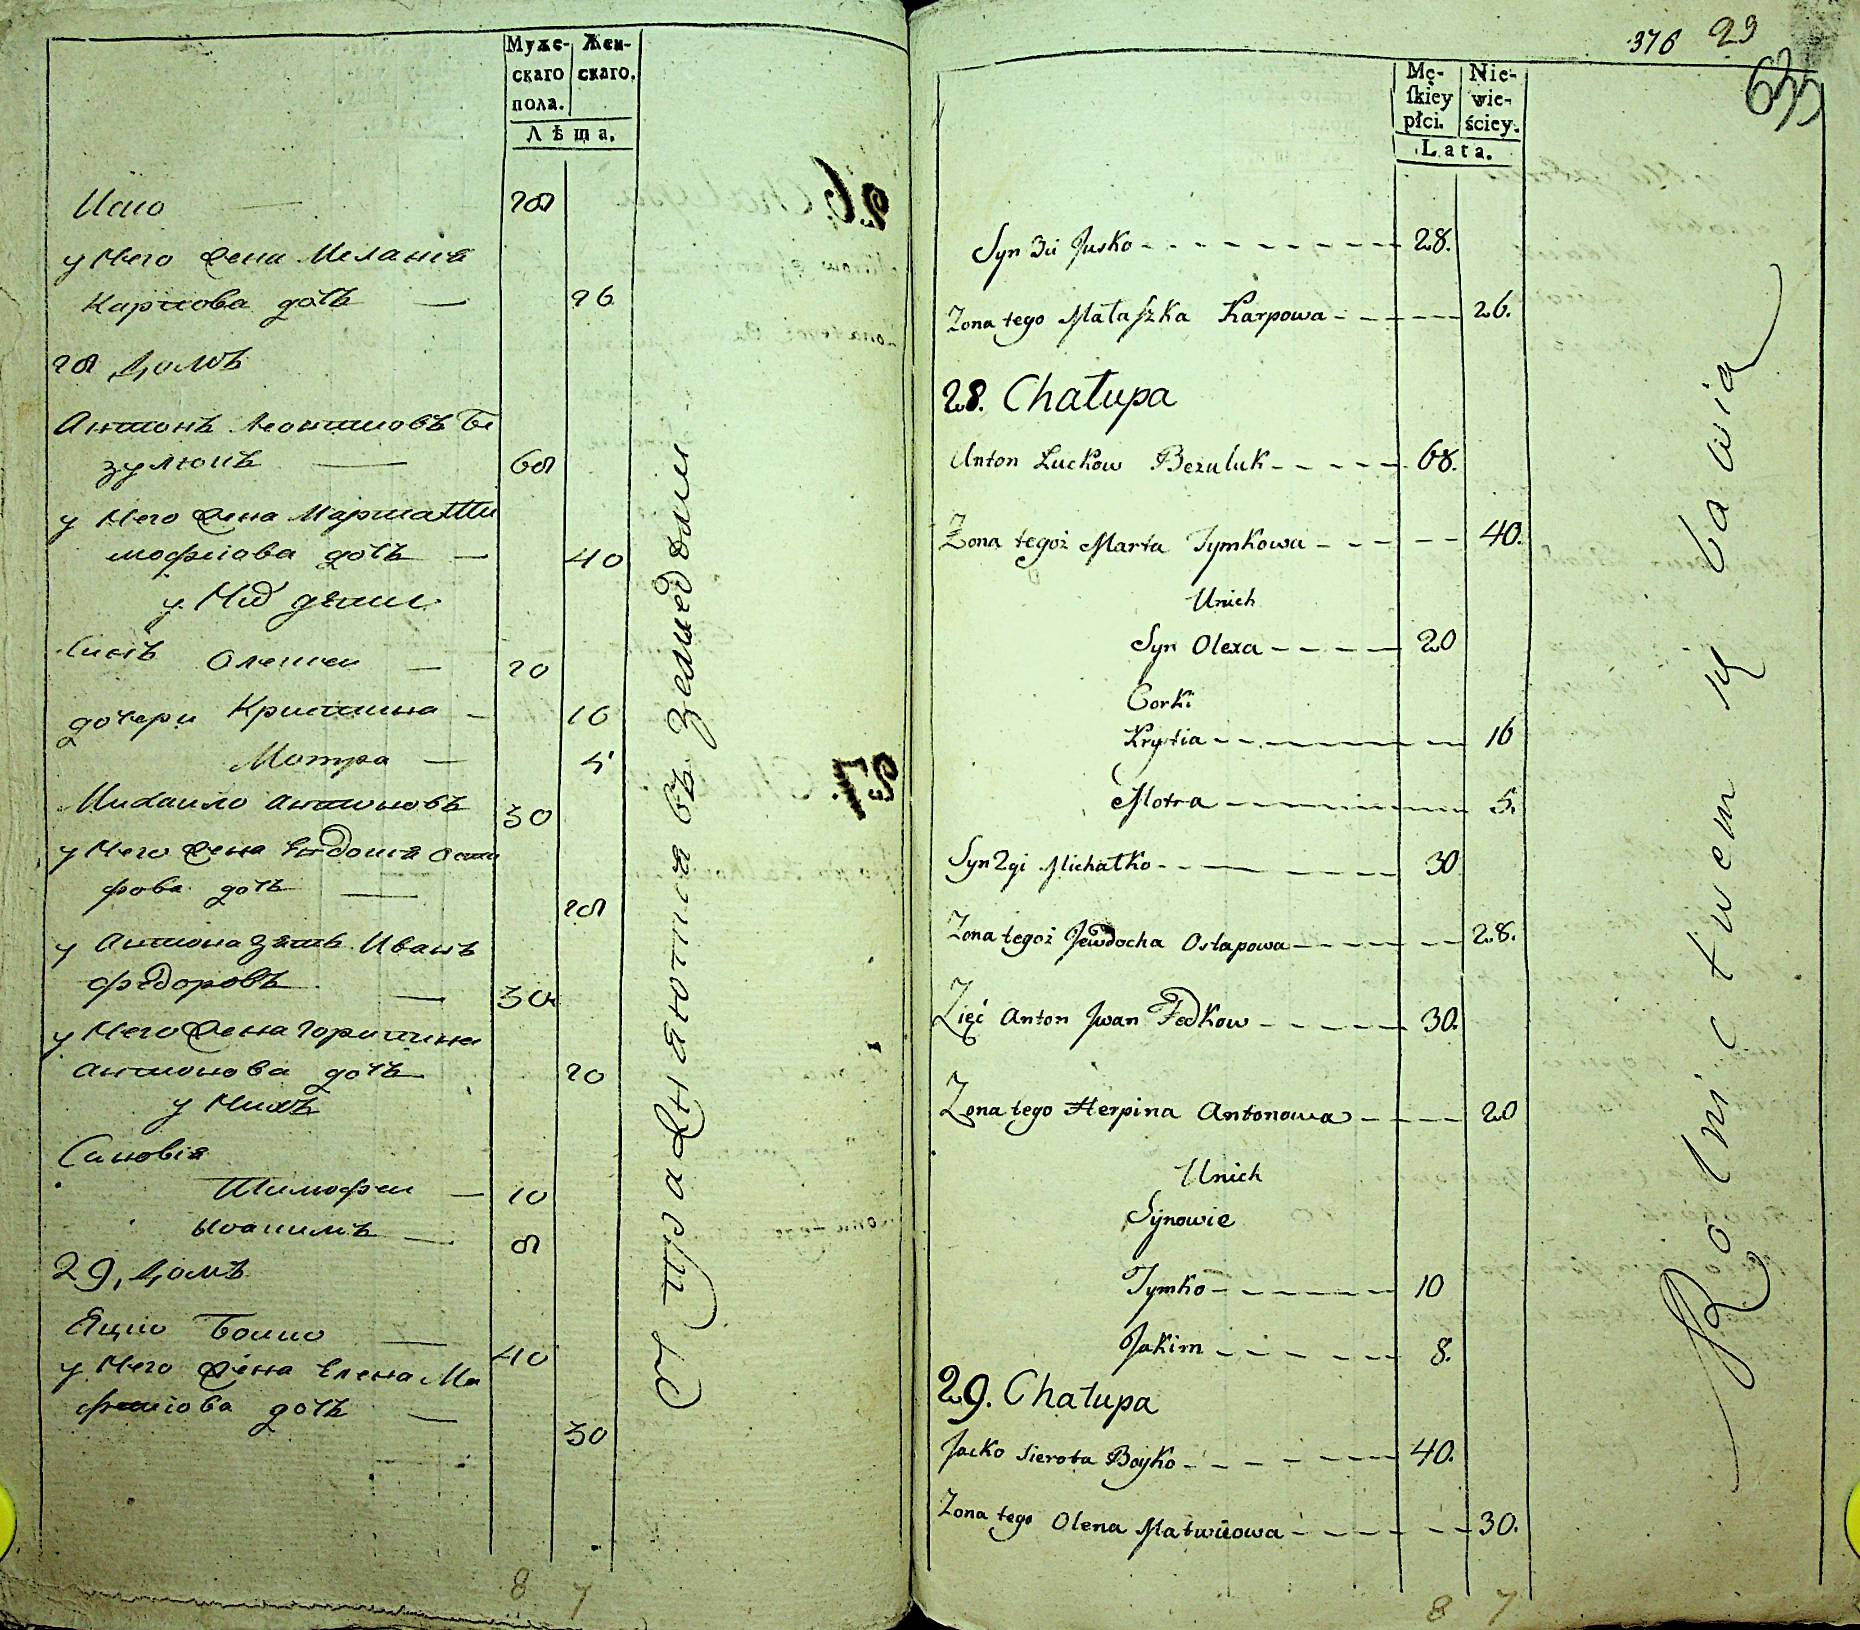 Муже-
скаго
пола.
Жен-
скаго.
Лѣта.
28
у Него жена Меланія
Карпова дочь — 26
28 Домъ
Антонъ Леонтиовъ Бе
зулюкъ — 68
у Него жена Марта Ти
мофиова дочь — 40
у Них дѣти
Синъ Олешеи — 20
дочери Кристина — 16
Мотра — 5
Михаило Антоновъ 30
у Него жена Евдокия Оста
фова дочь — 28
у Антона зять Иванъ
Федоровъ — 30
у Него жена Горпина
Антонова дочь 20
у Нихъ
Синовія
Тимофеи — 10
Иоакимъ — 8
29, Домъ
Яцко Боико — 40
у Него жена Елена Ма
фтиова дочь — 30
Упражняются въ Земледѣлии
8 7
376 29
635
Mę-
ſkiey
płci.
Nie-
wie-
ściey.
Lata.
Syn 3ci Jusko 28.
Zona tego Małaszka Karpowa 26.
28. Chałupa
Anton Łuckow Bezuluk 68.
Zona tegoż Marta Tymkowa 40.
Unich
Syn Olexa 20
Corki
Krystia 16
Motra 5.
Syn 2gi Michałko 30
Zona tegoż Jewdocha Ostapowa 28.
Zięć Anton Jwan Fedkow 30.
Zona tego Herpina Antonowa 20
Unich
Synowie
Tymko 10
Jakim 8.
29. Chałupa
Jacko Sierota Boyko 40.
Zona tego Olena Matwiiowa 30.
Rolnictwem się bawia
8 7